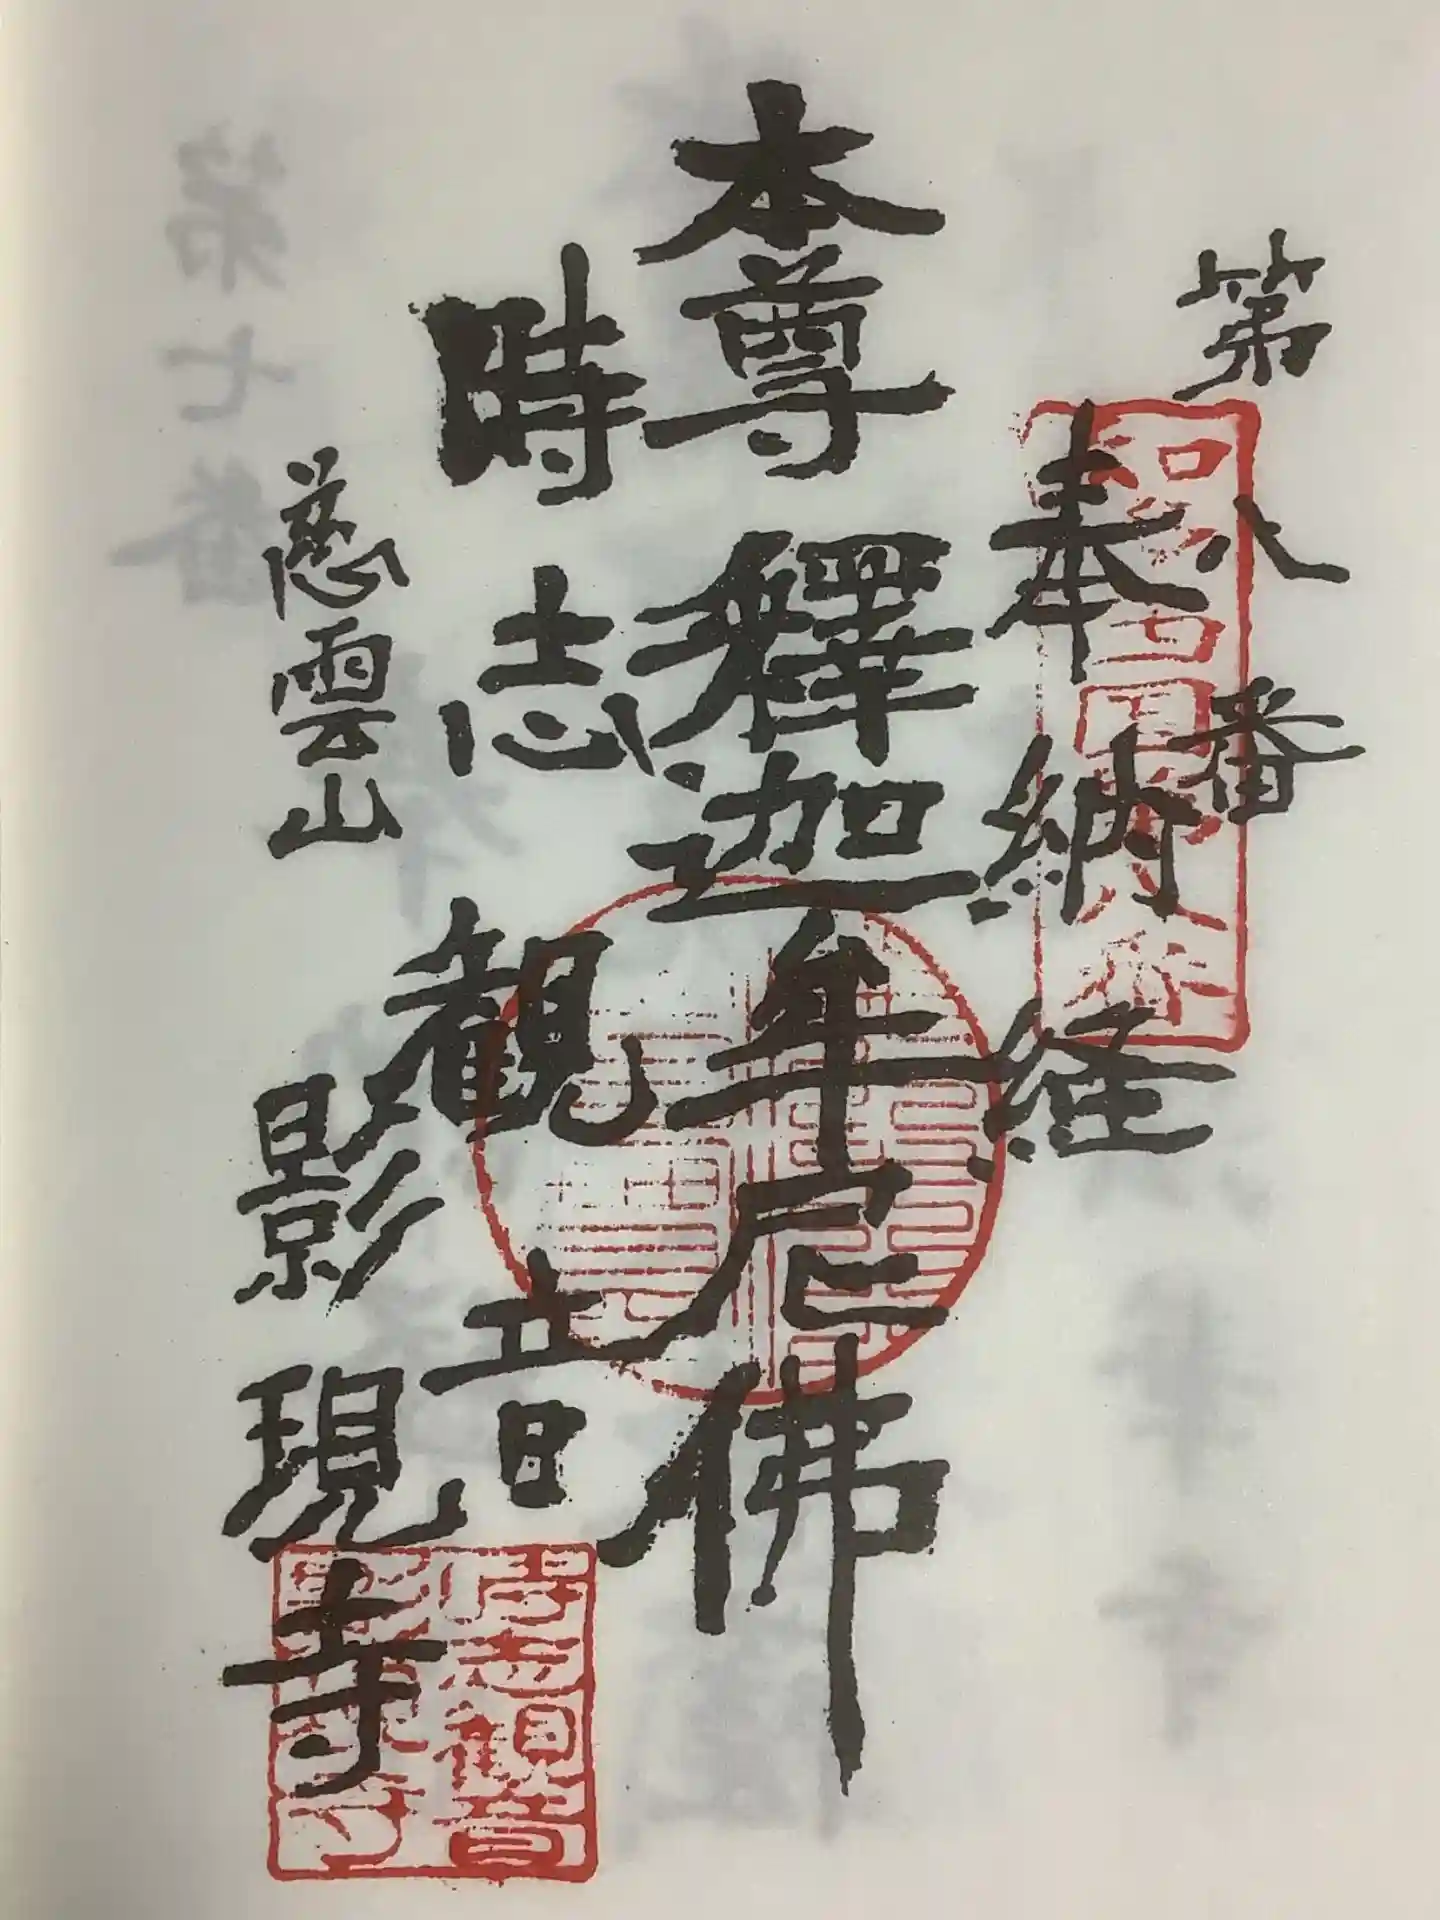 第八番
奉納経
本尊釋迦牟尼佛
時志觀音
慈雲山
影現寺
時志観音
影現寺
第七番